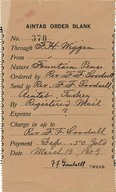 AINTAB ORDER BLANK
No. 370
Through F. H. Wiggin
From
Nature Fountain Pens
Ordered by Rev. F. F. Goodsell
Send to Rev. F. F. Goodsell
Aintab Turkey
By Registered Mail
Expense
Charge in a/c to
Rev F. F. Goodsell
Payment Dep. .50 Gold
Date March 14, 1909
F F Goodsell